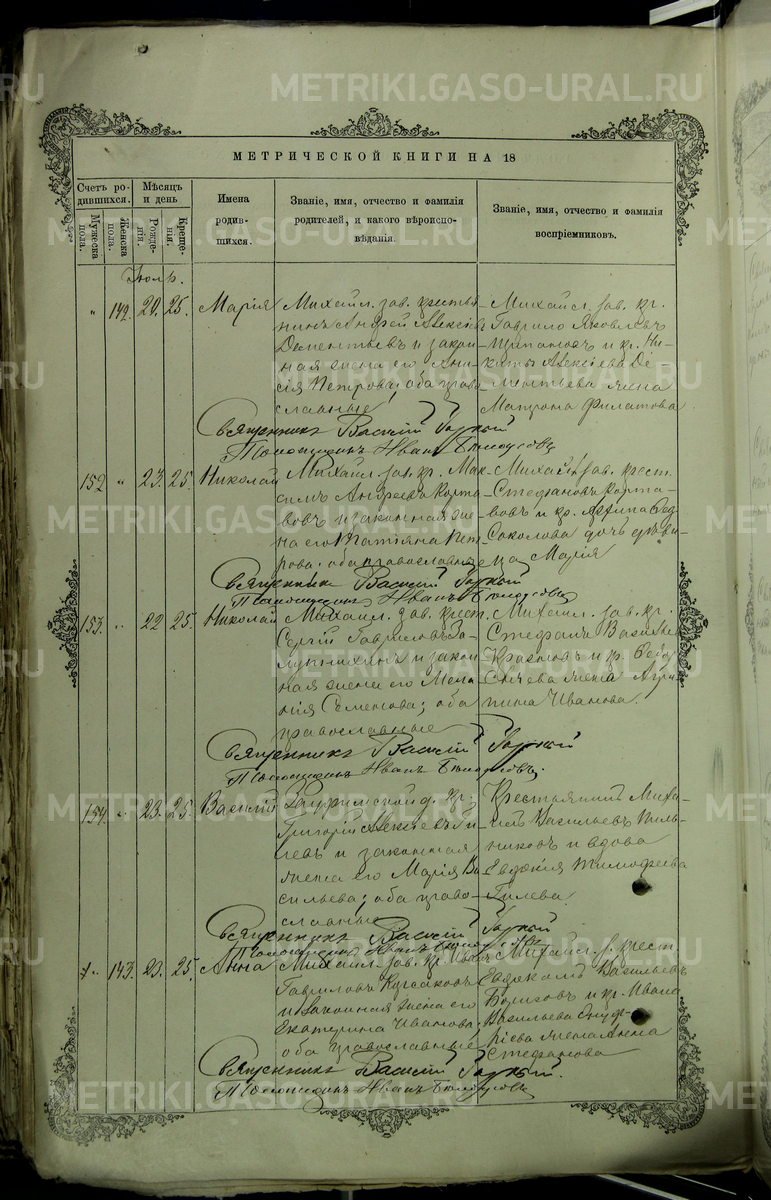 METRIKI.GASO-URAL.RU
МЕТРИЧЕСКОЙ КНИГИ НА 18
Счетъ ро-
дившихся.
Мужеска
пола.
Женска
пола.
Мѣсяцъ
и день
Рожде-
нія.
Креще-
нія.
Имена
родив-
шихся.
Званіе, имя, отчество и фамилія
родителей, и какого вѣроиспо-
вѣданія.
Званіе, имя, отчество и фамилія
воспріемниковъ.
Іюль.
" 142. 20. 25. Марія
Михайл. зав. кресть-
янинъ Андрей Алексѣевъ
Дементьевъ и закон-
ная жена его Ани-
сія Петрова; оба право-
славные
Михайл. зав. кр.
Гаврило Яковлевъ
и кр. Ни-
киты Алексѣева Де-
ментьева жена
Матрона Филатова.
Священникъ Василій
Иванъ
152 " 23. 25. Николай
Михайл. зав. кр. Мак-
симъ Андреевъ Корта-
вовъ и законная же-
на его Татіана Пет-
рова; оба православные
Михайл. зав. крест.
Стефановъ Корта-
вовъ и кр.
Соколова дочь дѣви-
ца Марія
Священникъ Василій
Иванъ
153. " 22 25. Николай
Михайл. зав. крест.
Сергій Гавриловъ
и закон-
ная жена его Мела-
нія Семенова; оба
православные
Михайл. зав. кр.
Стефанъ Василье
и кр.
жена Агри-
пина Иванова.
Священникъ Василій
Иванъ
154. " 23. 25. Василій
д. кр.
Григорій Алексѣевъ Ги-
левъ и законная
жена его Марія Ва-
сильева; оба право-
славные
Крестьянинъ Миха-
илъ Васильевъ Пиль-
никовъ и вдова
Евдокія Тимофеева
Гилева.
Священникъ Василій
Иванъ
" 143. 23. 25. Анна
Михайл. зав. кр. Иванъ
Гавриловъ
и законная жена его
Екатерина Иванова;
оба православные
Михайл. з. крест.
Евдокимъ Васильевъ
и кр. Ивана
Васильева Онуф-
ріева жена Анна
Стефанова
Священникъ Василій
Иванъ